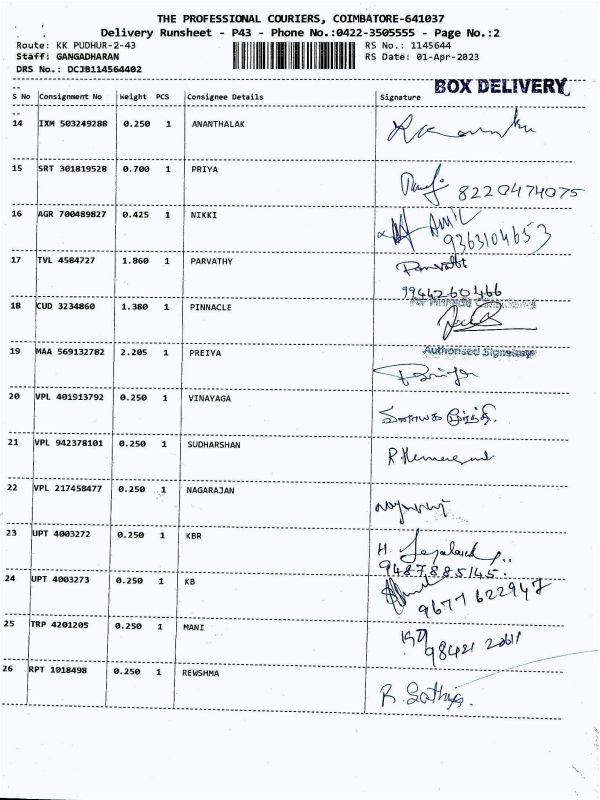 THE PROFESSIONAL COURIERS, COIMBATORE-641037
Delivery Runsheet - P43 - Phone No.:0422-3505555 - Page No.:2
Route: KK PUDHUR-2-43 RS No.: 1145644
Staff: GANGADHARAN RS Date: 01-Apr-2023
DRS No.: DCJB114564402
BOX DELIVERY
S No Consignment No Weight PCS Consignee Details Signature
14 IXM 503249288 0.250 1 ANANTHALAK
15 SRT 301819528 0.700 1 PRIYA
8220474075
16 AGR 700489827 0.425 1 NIKKI
AMIL
9363104653
17 TVL 4584727 1.860 1 PARVATHY
Parvathi
9944260466
18 CUD 3234860 1.380 1 PINNACLE
For Pinnacle
19 MAA 569132782 2.205 1 PREIYA Authorised Signatory
20 VPL 401913792 0.250 1 VINAYAGA
விநாயக மூர்த்தி.
21 VPL 942378101 0.250 1 SUDHARSHAN
22 VPL 217458477 0.250 1 NAGARAJAN
23 UPT 4003272 0.250 1 KBR
H.
9487885145.
24 UPT 4003273 0.250 1 KB
9677622947
25 TRP 4201205 0.250 1 MANI
98421 20611
26 RPT 1018498 0.250 1 REWSHMA
R. Sathya.